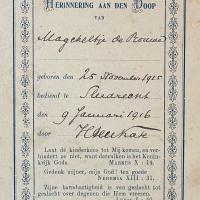 HERINNERING AAN DEN DOOP
VAN
Magcheltje de
geboren den 25 November 1915
bediend te
den 9 Januari 1916
door
Laat de kinderkens tot Mij komen, en ver-
hindert ze niet, want derzulken is het Konink-
rijk Gods. MARKUS X : 14.
Gedenk mijner, mijn God! ten goede
NEHEMIA XIII : 31.
Zijne barmhartigheid is van geslacht tot
geslacht over degenen die Hem vreezen.